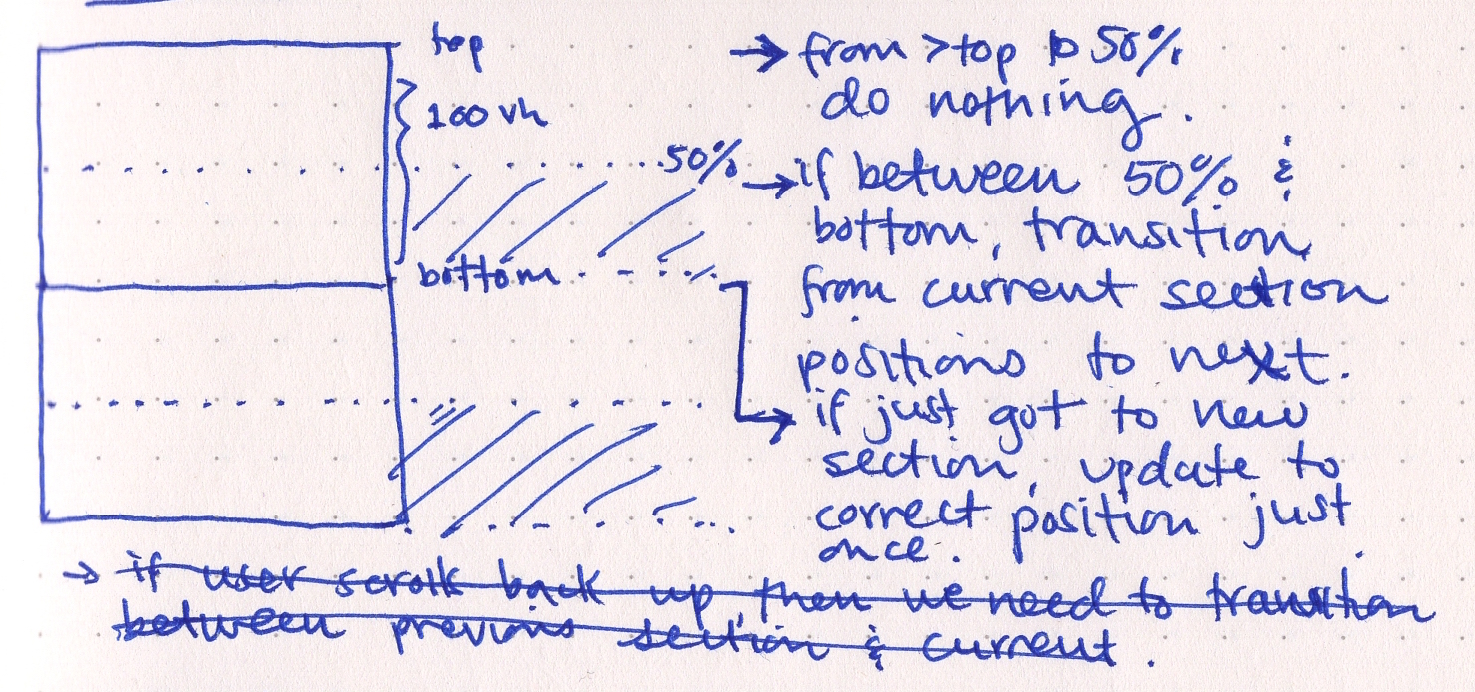 top
100 vh
50%
bottom
→ from >top to 50%
do nothing.
→ if between 50% &
bottom, transition
from current section
positions to next.
→ if just got to new
section, update to
correct position just
once.
→ if user scrolls back up, then we need to transition
between previous section & current.